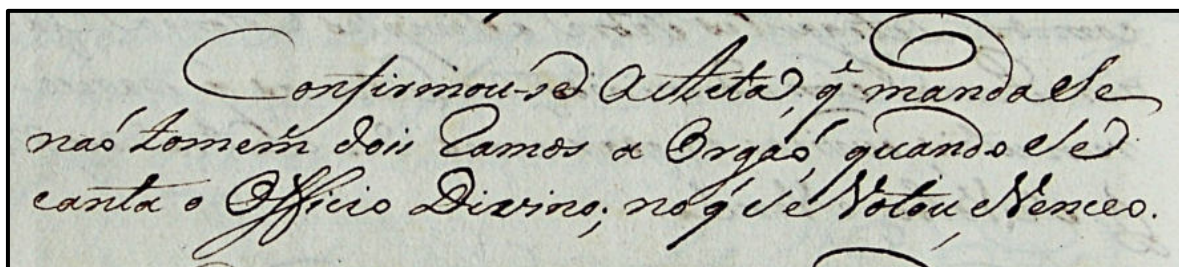 Confirmou-se a Acta, q̃ manda se
naó tomem dois Ramos a Orgaó quando se
canta o Officio Divino; no q̃ se Votou, e Venceo.